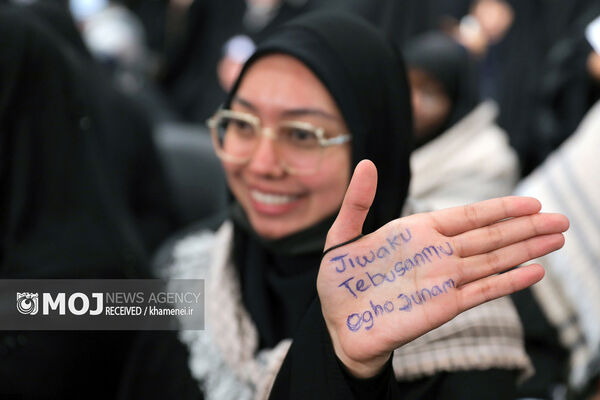 Jiwaku
Tebusanmu
Ogho Junam
MOJ NEWS AGENCY
RECEIVED / khamenei.ir